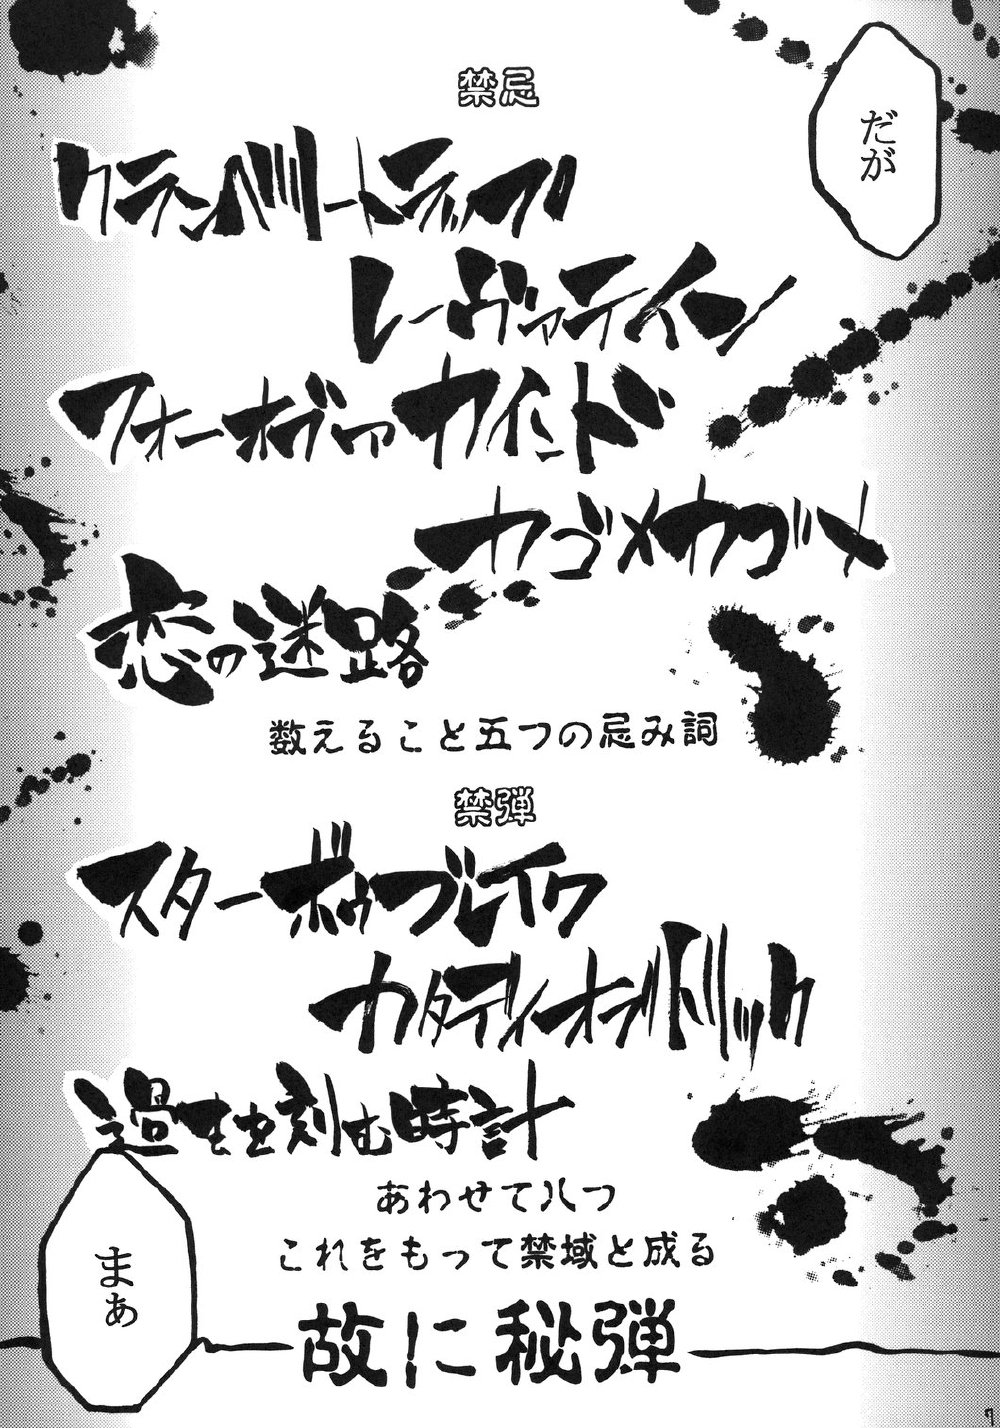 だが
禁忌
クランベリートラップ
レーヴァテイン
フォーオブアカインド
カゴメカゴメ
恋の迷路
数えること五つの忌み詞
禁弾
スターボウブレイク
カタディオプトリック
過去を刻む時計
あわせて八つ
これをもって禁域と成る
故に秘弾
まぁ
7